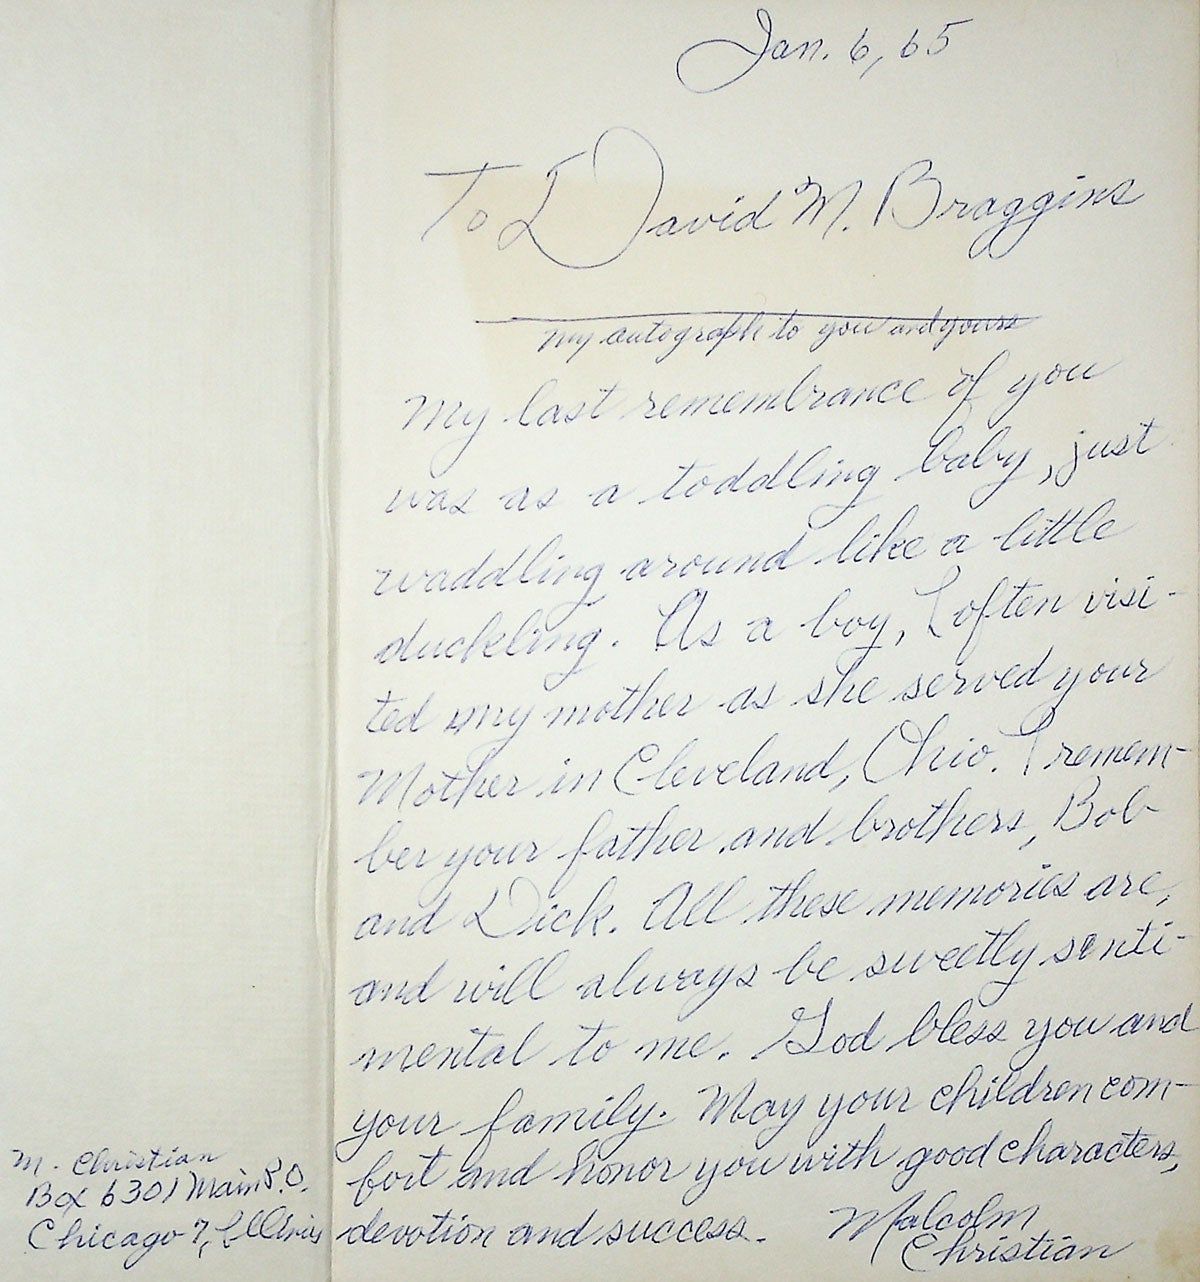 Jan. 6, 65
To David M. Braggins
My autograph to you and yours
My last remembrance of you
was as a toddling baby, just
waddling around like a little
duckling. As a boy, I often visi-
ted my mother as she served your
Mother in Cleveland, Ohio. I remem-
ber your father and brothers, Bob
and Dick. All these memories are,
and will always be sweetly senti-
mental to me. God bless you and
your family. May your children com-
fort and honor you with good characters,
devotion and success. Malcolm
Christian
M. Christian
Box 6301 Main P.O.
Chicago 7, Illinois